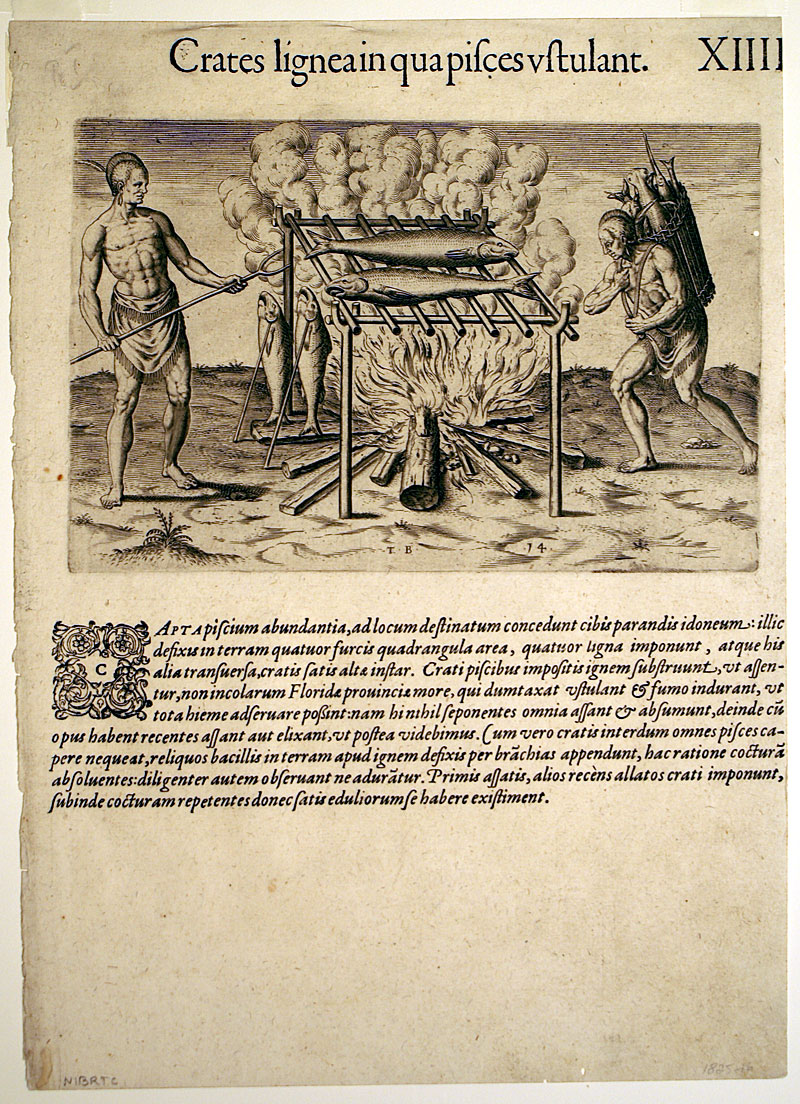 Crates lignea in qua piſces vſtulant. XIIII
T. B 14
CAPTA piſcium abundantia, ad locum deſtinatum concedunt cibis parandis idoneum: illic
defixis in terram quatuor furcis quadrangula area, quatuor ligna imponunt, atque his
alia tranſuerſa, cratis ſatis altæ inſtar. Crati piſcibus impoſitis ignem ſubſtruunt, vt aſſen-
tur, non incolarum Floridæ prouinciæ more, qui dumtaxat vſtulant & fumo indurant, vt
tota hieme adſeruare poßint: nam hi nihil ſeponentes omnia aſſant & abſumunt, deinde cũ
opus habent recentes aſſant aut elixant, vt poſtea videbimus. Cum vero cratis interdum omnes piſces ca-
pere nequeat, reliquos bacillis in terram apud ignem defixis per brãchias appendunt, hac ratione cocturã
abſoluentes: diligenter autem obſeruant ne adurãtur. Primis aſſatis, alios recèns allatos crati imponunt,
ſubinde cocturam repetentes donec ſatis eduliorum ſe habere exiſtiment.
N1BRTC